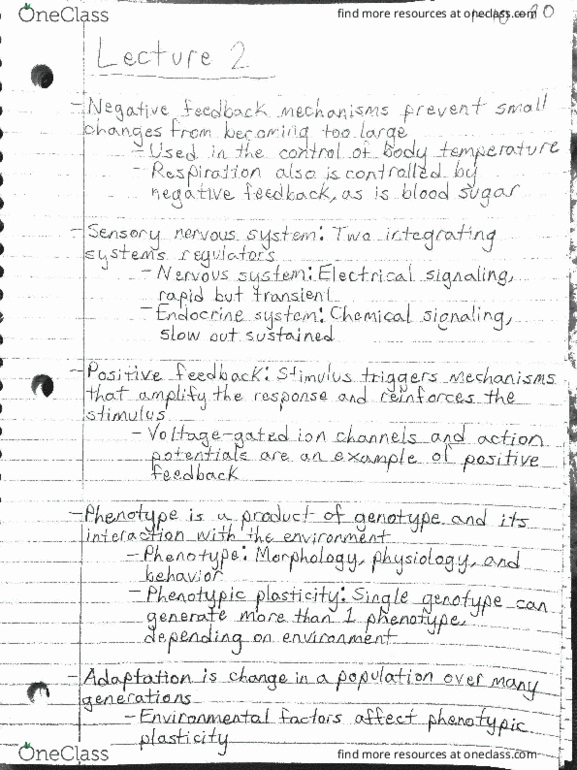 OneClass find more resources at oneclass.com
Lecture 2
- Negative feedback mechanisms prevent small
changes from becoming too large
- Used in the control of body temperature
- Respiration also is controlled by
negative feedback, as is blood sugar
- Sensory nervous system: Two integrating
systems regulators
- Nervous system: Electrical signaling,
rapid but transient
- Endocrine system: Chemical signaling,
slow out sustained
- Positive feedback: Stimulus triggers mechanisms
that amplify the response and reinforces the
stimulus
- Voltage-gated ion channels and action
potentials are an example of positive
feedback
- Phenotype is a product of genotype and its
interaction with the environment
- Phenotype: Morphology, physiology, and
behavior
- Phenotypic plasticity: Single genotype can
generate more than 1 phenotype,
depending on environment
- Adaptation is change in a population over many
generations
- Environmental factors affect phenotypic
plasticity
OneClass find more resources at oneclass.com